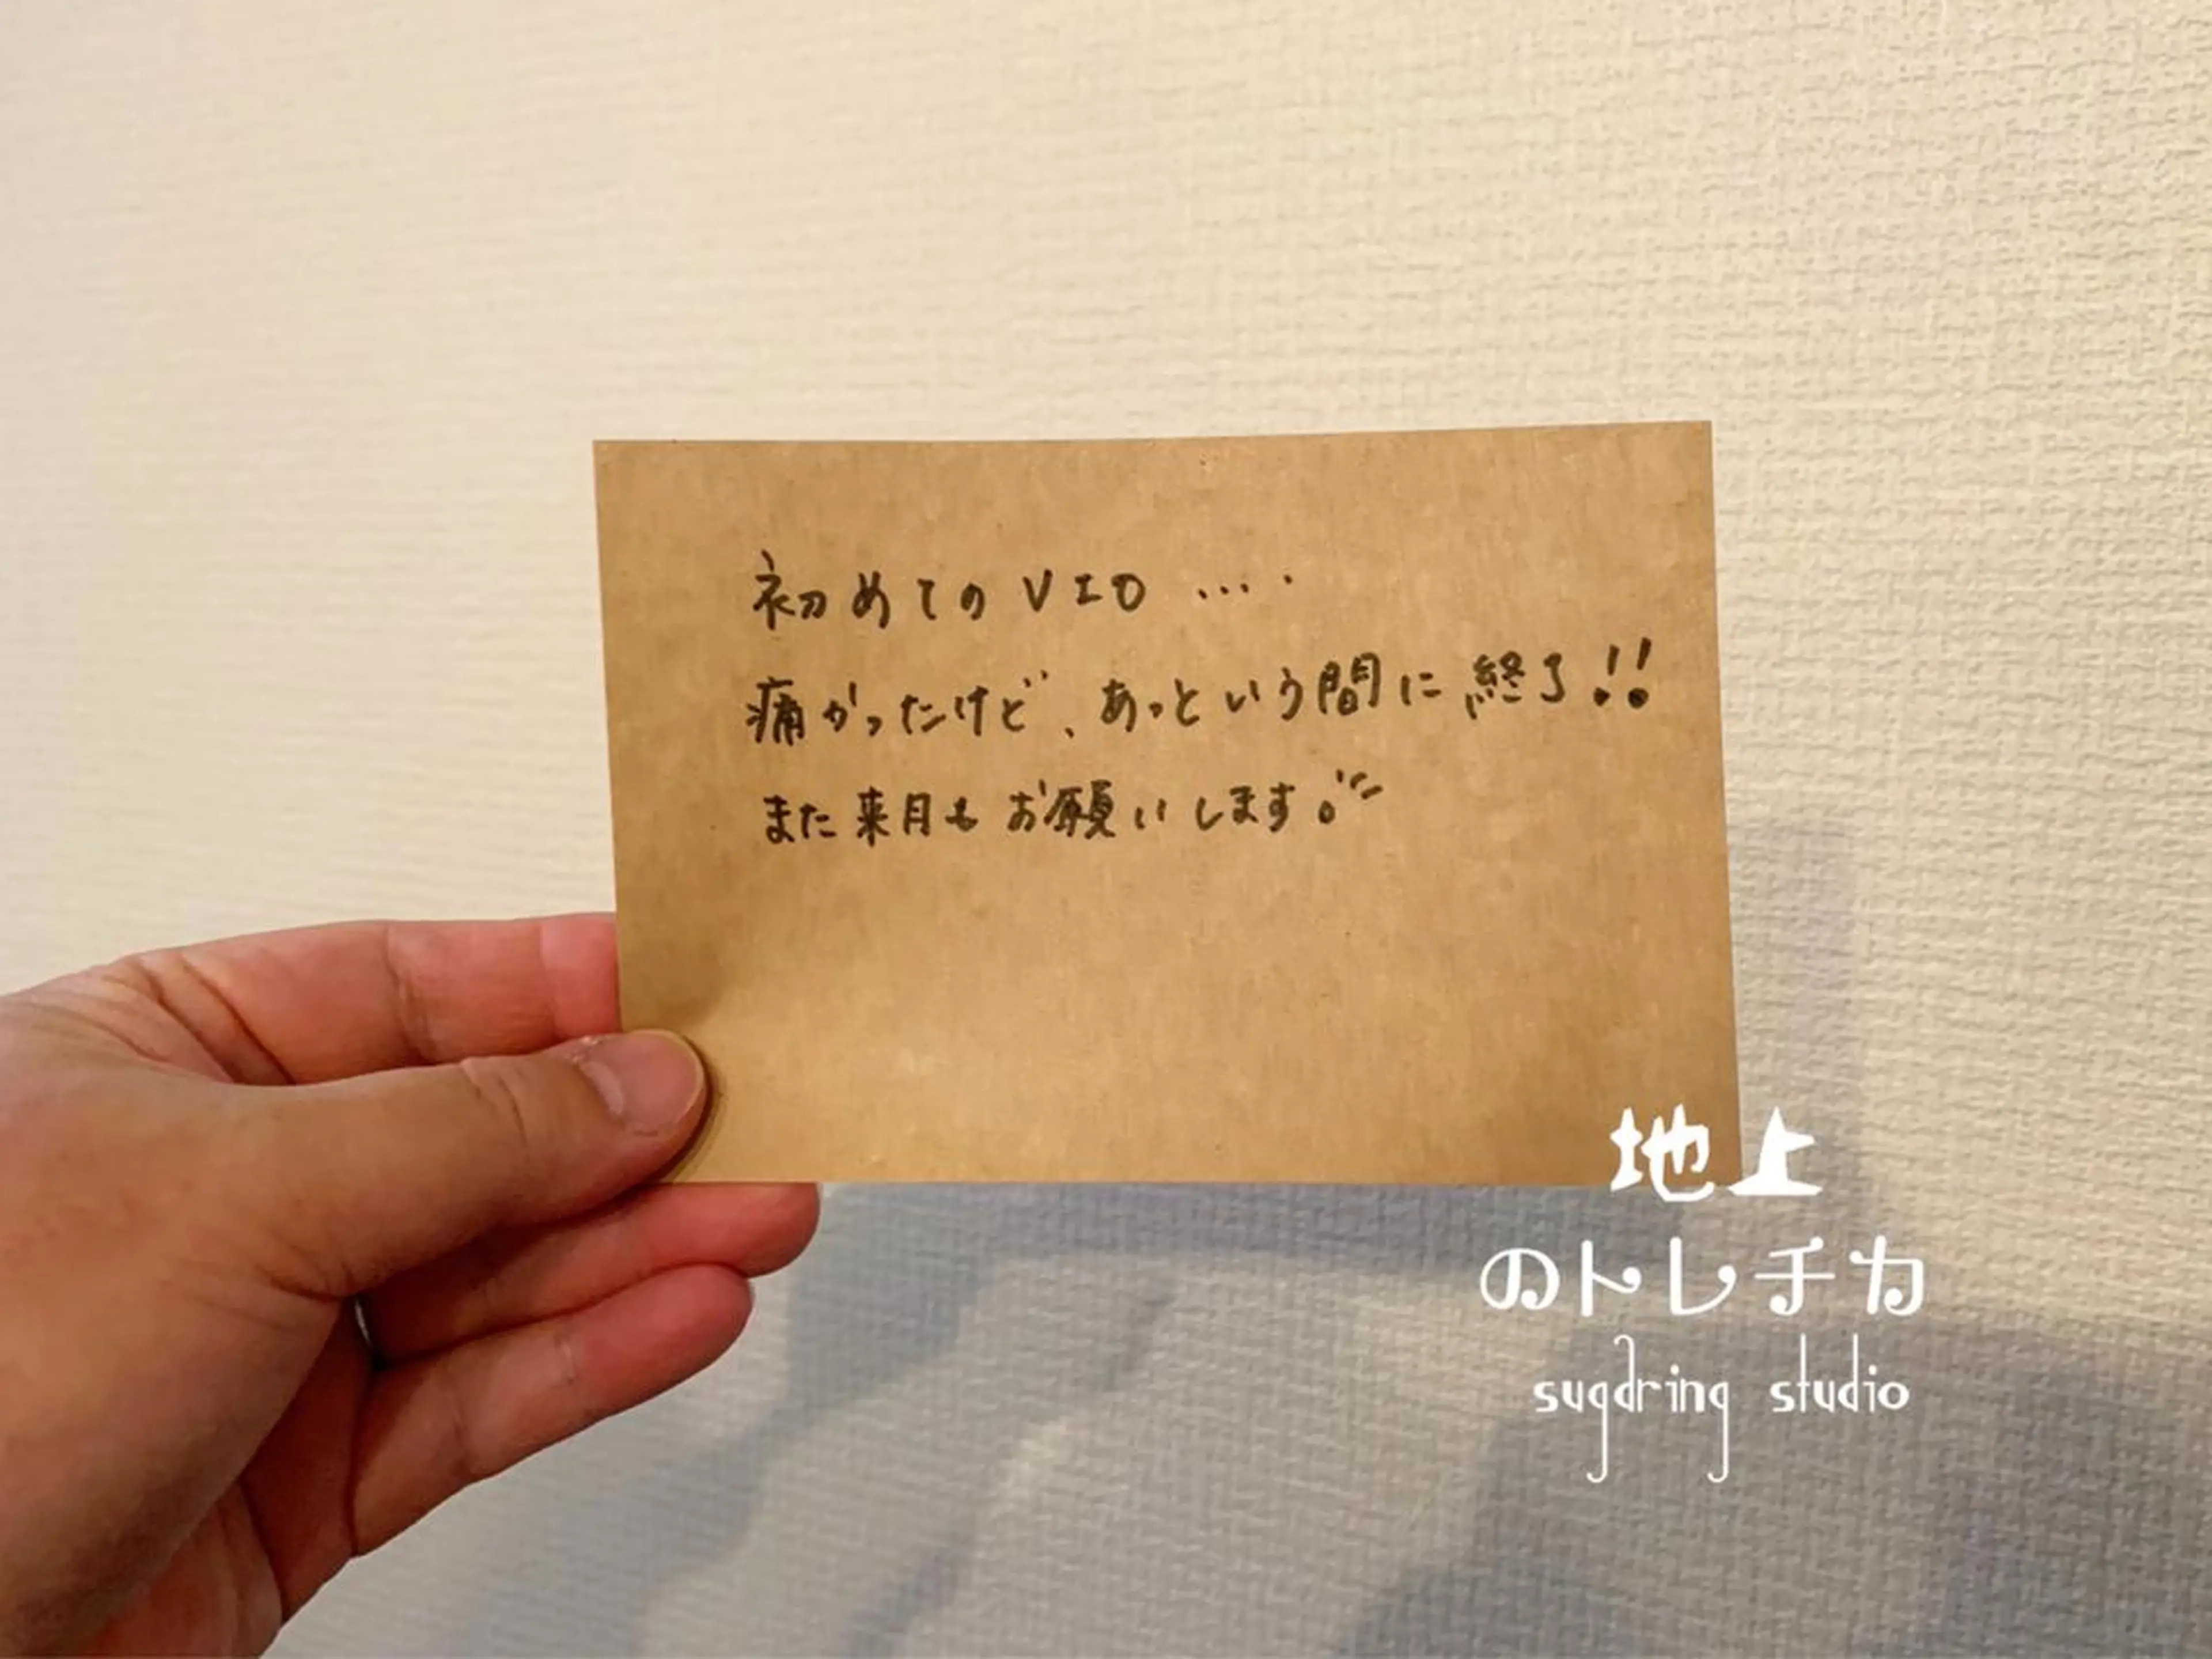 初めてのVIO ‥‥
痛かったけど、あっという間に終了!!
また来月もお願いします。
地上
のトレチカ
sugaring studio